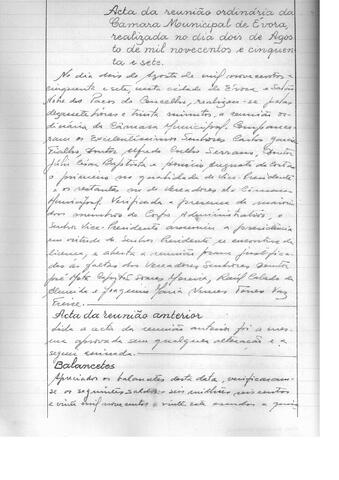 Acta da reunião ordinária da
Camara Municipal de Évora,
realizada no dia dois de Agos
to de mil novecentos e cinquen
ta e sete.
No dia dois de Agosto de mil novecentos e
cinquenta e sete, nesta cidade de Évora e Salão
Nobre dos Paços do Concelho, realizou-se pelas
dezassete horas e trinta minutos, a reunião or-
dinária da Câmara Municipal. Comparece-
ram os Excelentíssimos Senhores Carlos
Fialho, Doutor Alfredo Coelho Serrano, Doutor
Júlio César Baptista e
o primeiro na qualidade de Vice-Presidente
e os restantes na de vereadores da Câmara
Municipal. Verificada a presença da maioria
dos membros do Corpo Administrativo, o
Senhor Vice-Presidente assumiu a presidência
em virtude do Senhor Presidente se encontrar de
licença, e aberta a reunião foram justifica-
das as faltas dos Vereadores Senhores Doutor
José Capitão Moreira, Raúl
Almeida e Joaquim Maria Nunes Vaz
Freire.
Acta da reunião anterior
Lida a acta da reunião anterior foi a mes-
ma aprovada sem qualquer alteração e a
seguir assinada.
Balancetes
Apreciados os balancetes desta data, verificaram-
se os seguintes saldos: seis milhões,
e vinte mil novecentos e vinte sete escudos e